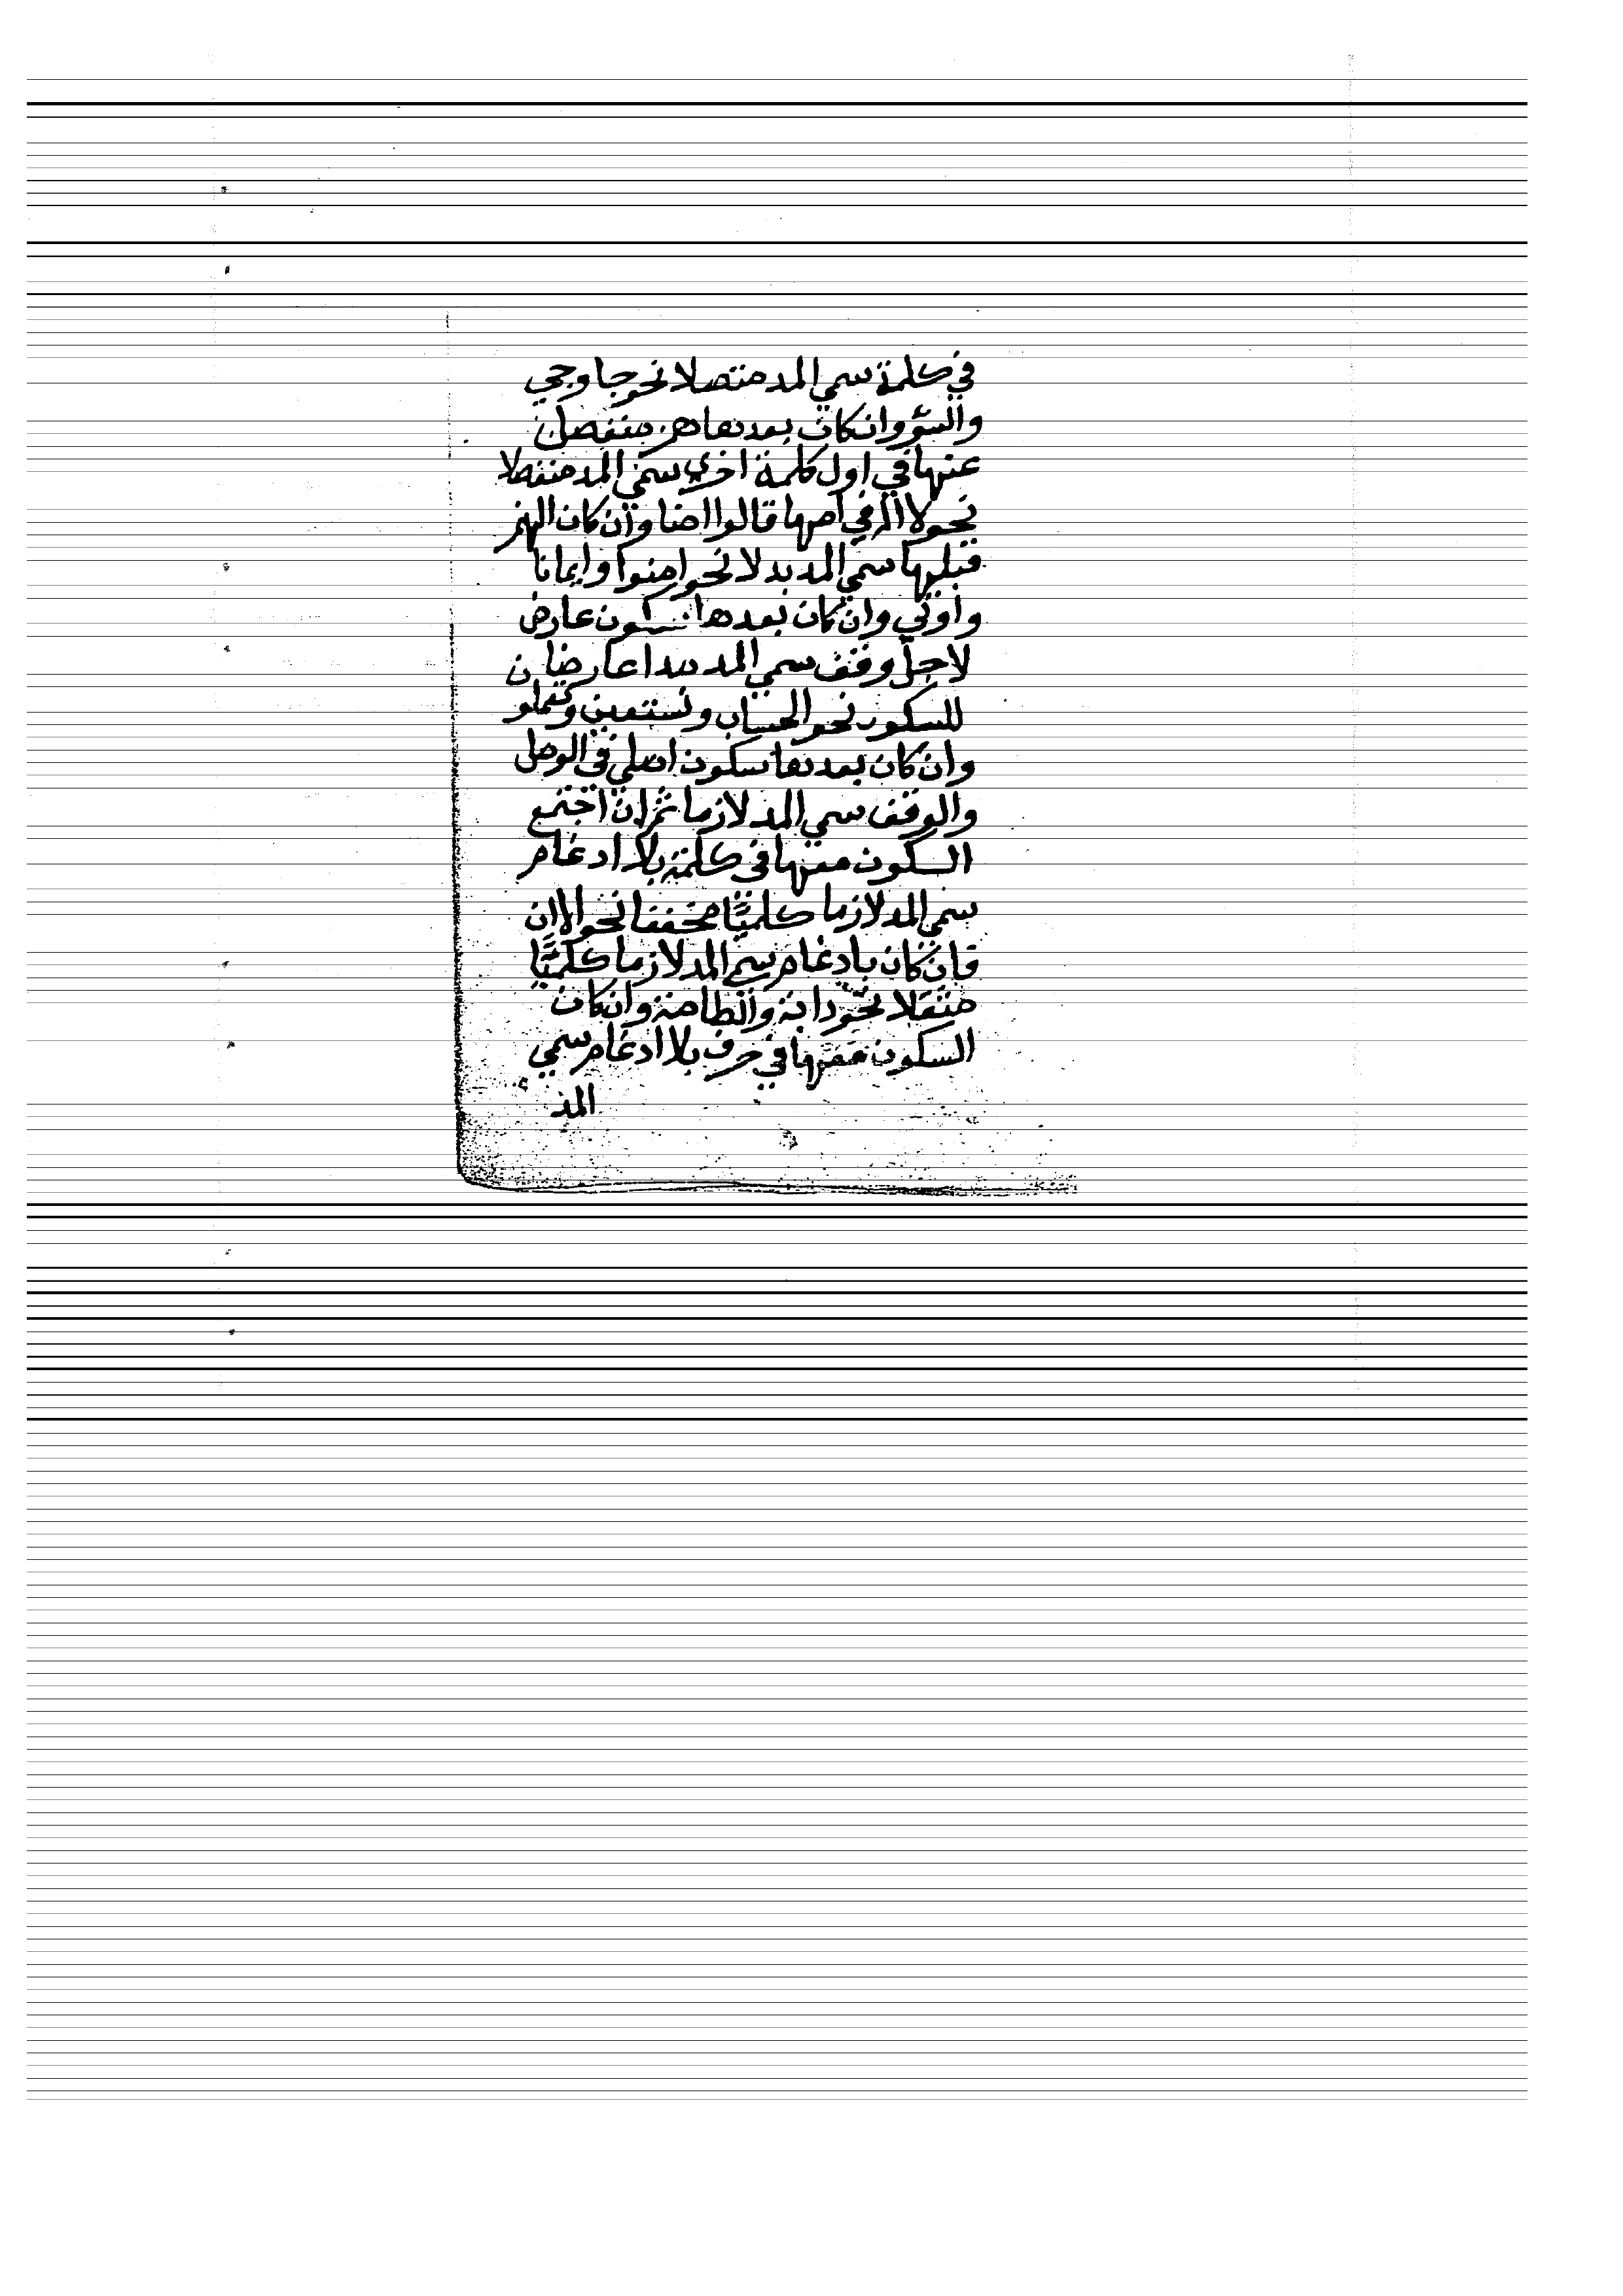 في كلمة سمي المد متصلا نحو جا وجي
والسؤ وان كان بعدها همز منفصل
عنها في اول كلمة اخري سمي المد منفصلا
نحو لا في امها قالوا وان كان الهمز
قبلها سمي المد بدلا نحو امنوا وايمانا
واوتي وان كان بعدها سكون عارض
لاجل وقف سمي المد مدا عارضا
للسكون نحو الحساب ونستعين
وان كان بعدها سكون اصلي في الوصل
والوقف سمي المد لازما ثم ان اجتمع
السكون معها في كلمة بلا ادغام
سمي المد لازما كلميًّا مخففا نحو الاان
فان كان بادغام سمي المد لازما كلميًّا
مثقلا نحو دابة والطامة وان كان
السكون معها في حرف بلا ادغام سمي
المد